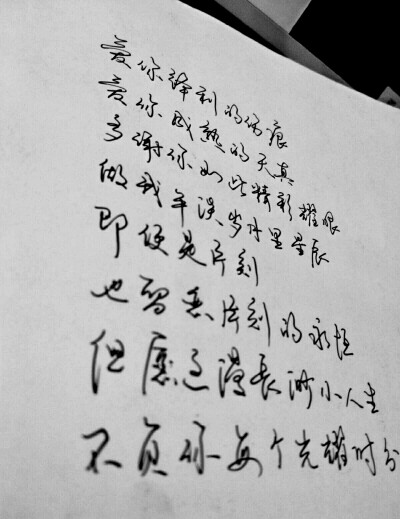 爱你锋利的伤痕
爱你成熟的天真
多谢你如此精彩耀眼
做我平淡岁月里星辰
即便是片刻
也留片刻的永恒
但愿这漫长渺小人生
不负你每个光耀时分